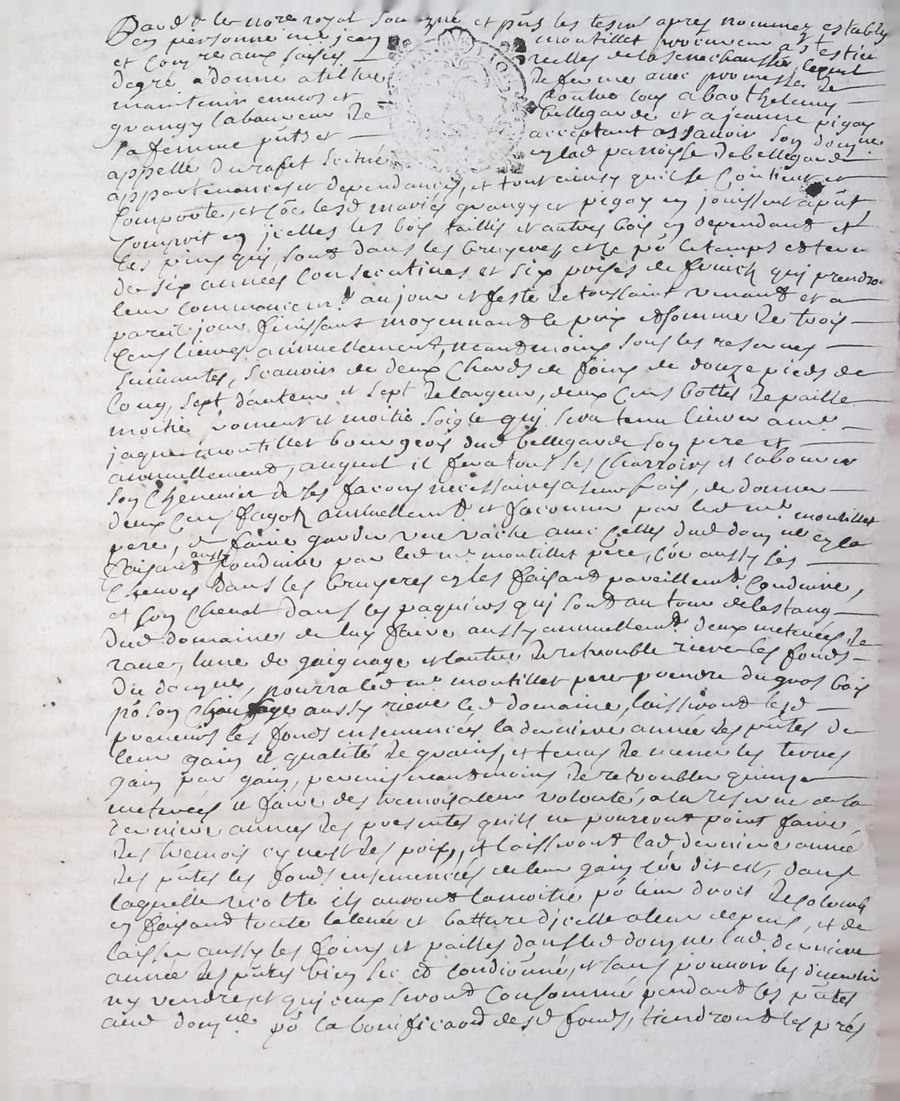 Pard.t le no.re royal sousigné et p.nts les tesmoins apres nommez establis
en personne m.e jean montillet procureur
et con.re aux saisies reelles de la senechaussée lequel
degré a donné a tiltre de ferme avec promesse de
maintenir envers et contre tous a barthelemy
grangy laboureur de bellegarde et a jeanne pigay
sa femme p.nts et acceptant assavoir son domaine
appellé durafet scitué en lad parroisse de bellegarde
appartenances et dependances, et tout ainsy quil se contient et
comporte, et co.e lesd mariés grangy et pigay en jouissent a p.nt
compris en jcelles les bois taillis et autres bois en dependant et
les pins qui sont dans les bruyeres et ce po le temps et terme
de six années consecutives et six prises de fruicts qui prendront
leur commancement au jour et feste de toussaint venant et a
pareil jour finissant moyennant le prix et somme de trois
cens livres annuellement, neantmoins sous les reserves
suivantes, scavoir de deux chards de foins de douze pieds de
long, sept dauteur et sept de largeur, deux cens bottes de paille
moitié froment et moitié soigle qui sera tenu livrer a m.e
jaque montillet bourgeois dud bellegarde son pere et
annuellement, auquel il fera tous ses charroirs et labourer
son chenevier de ses façons necessaires a leur frais, de donner
deux cens fagots annuellement et façonner par led m.e montillet
pere, de faire garder une vache avec celles dud domaine en la
faisant aussy conduire par led m.e montillet pere, co.e aussy les
chevres dans les bruyeres en les faisant pareillement conduire,
et son cheval dans les paquiers qui sont autour de lestang
dud domaine de luy faire aussy annuellem.t deux meterées de
rave, lune de gaignage et lautre de retrouble riere les fonds
du domaine, pourra led m.e montillet pere prendre du gros bois
po son chauffage aussy riere led domaine, laisseront lesd
preneurs les fonds ensemencés la derniere année des p.ntes de
leur gain et qualité de grains, et tenus de mener les terres
gain par gain, permis neantmoins de retroubler quinze
meterées et faire des tremois a leur volonté, a la reserve de la
derniere année des presentes quils ne pourront point faire,
des tremois si nest des poix, et laisseront lad derniere année
des p.ntes les fonds ensemencés de leur gain co.e dit est, dans
laquelle recolte ils auront la moitié po leur droit de colonage
en faisant toute la levée et batture djcelle a leur depens, et de
laisser aussy les foins et pailles dans led domaine lad derniere
année des p.ntes bien sec et condionné, et sans pouvoir les divertir
ny vendre, et qui iceux seront consommé pendant les p.ntes
aud domaine po la bonificaõn desd fonds, tiendront les prés